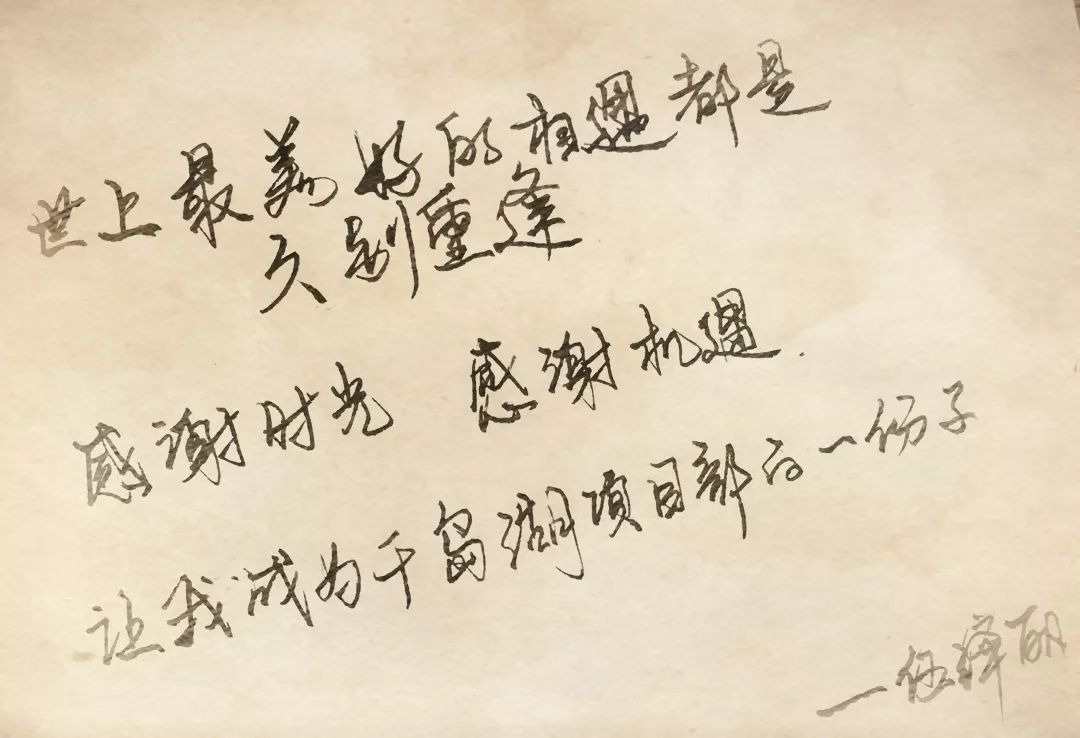 世上最美好的相遇都是
久别重逢
感谢时光 感谢机遇.
让我成为千岛湖项目部的一份子
—任泽